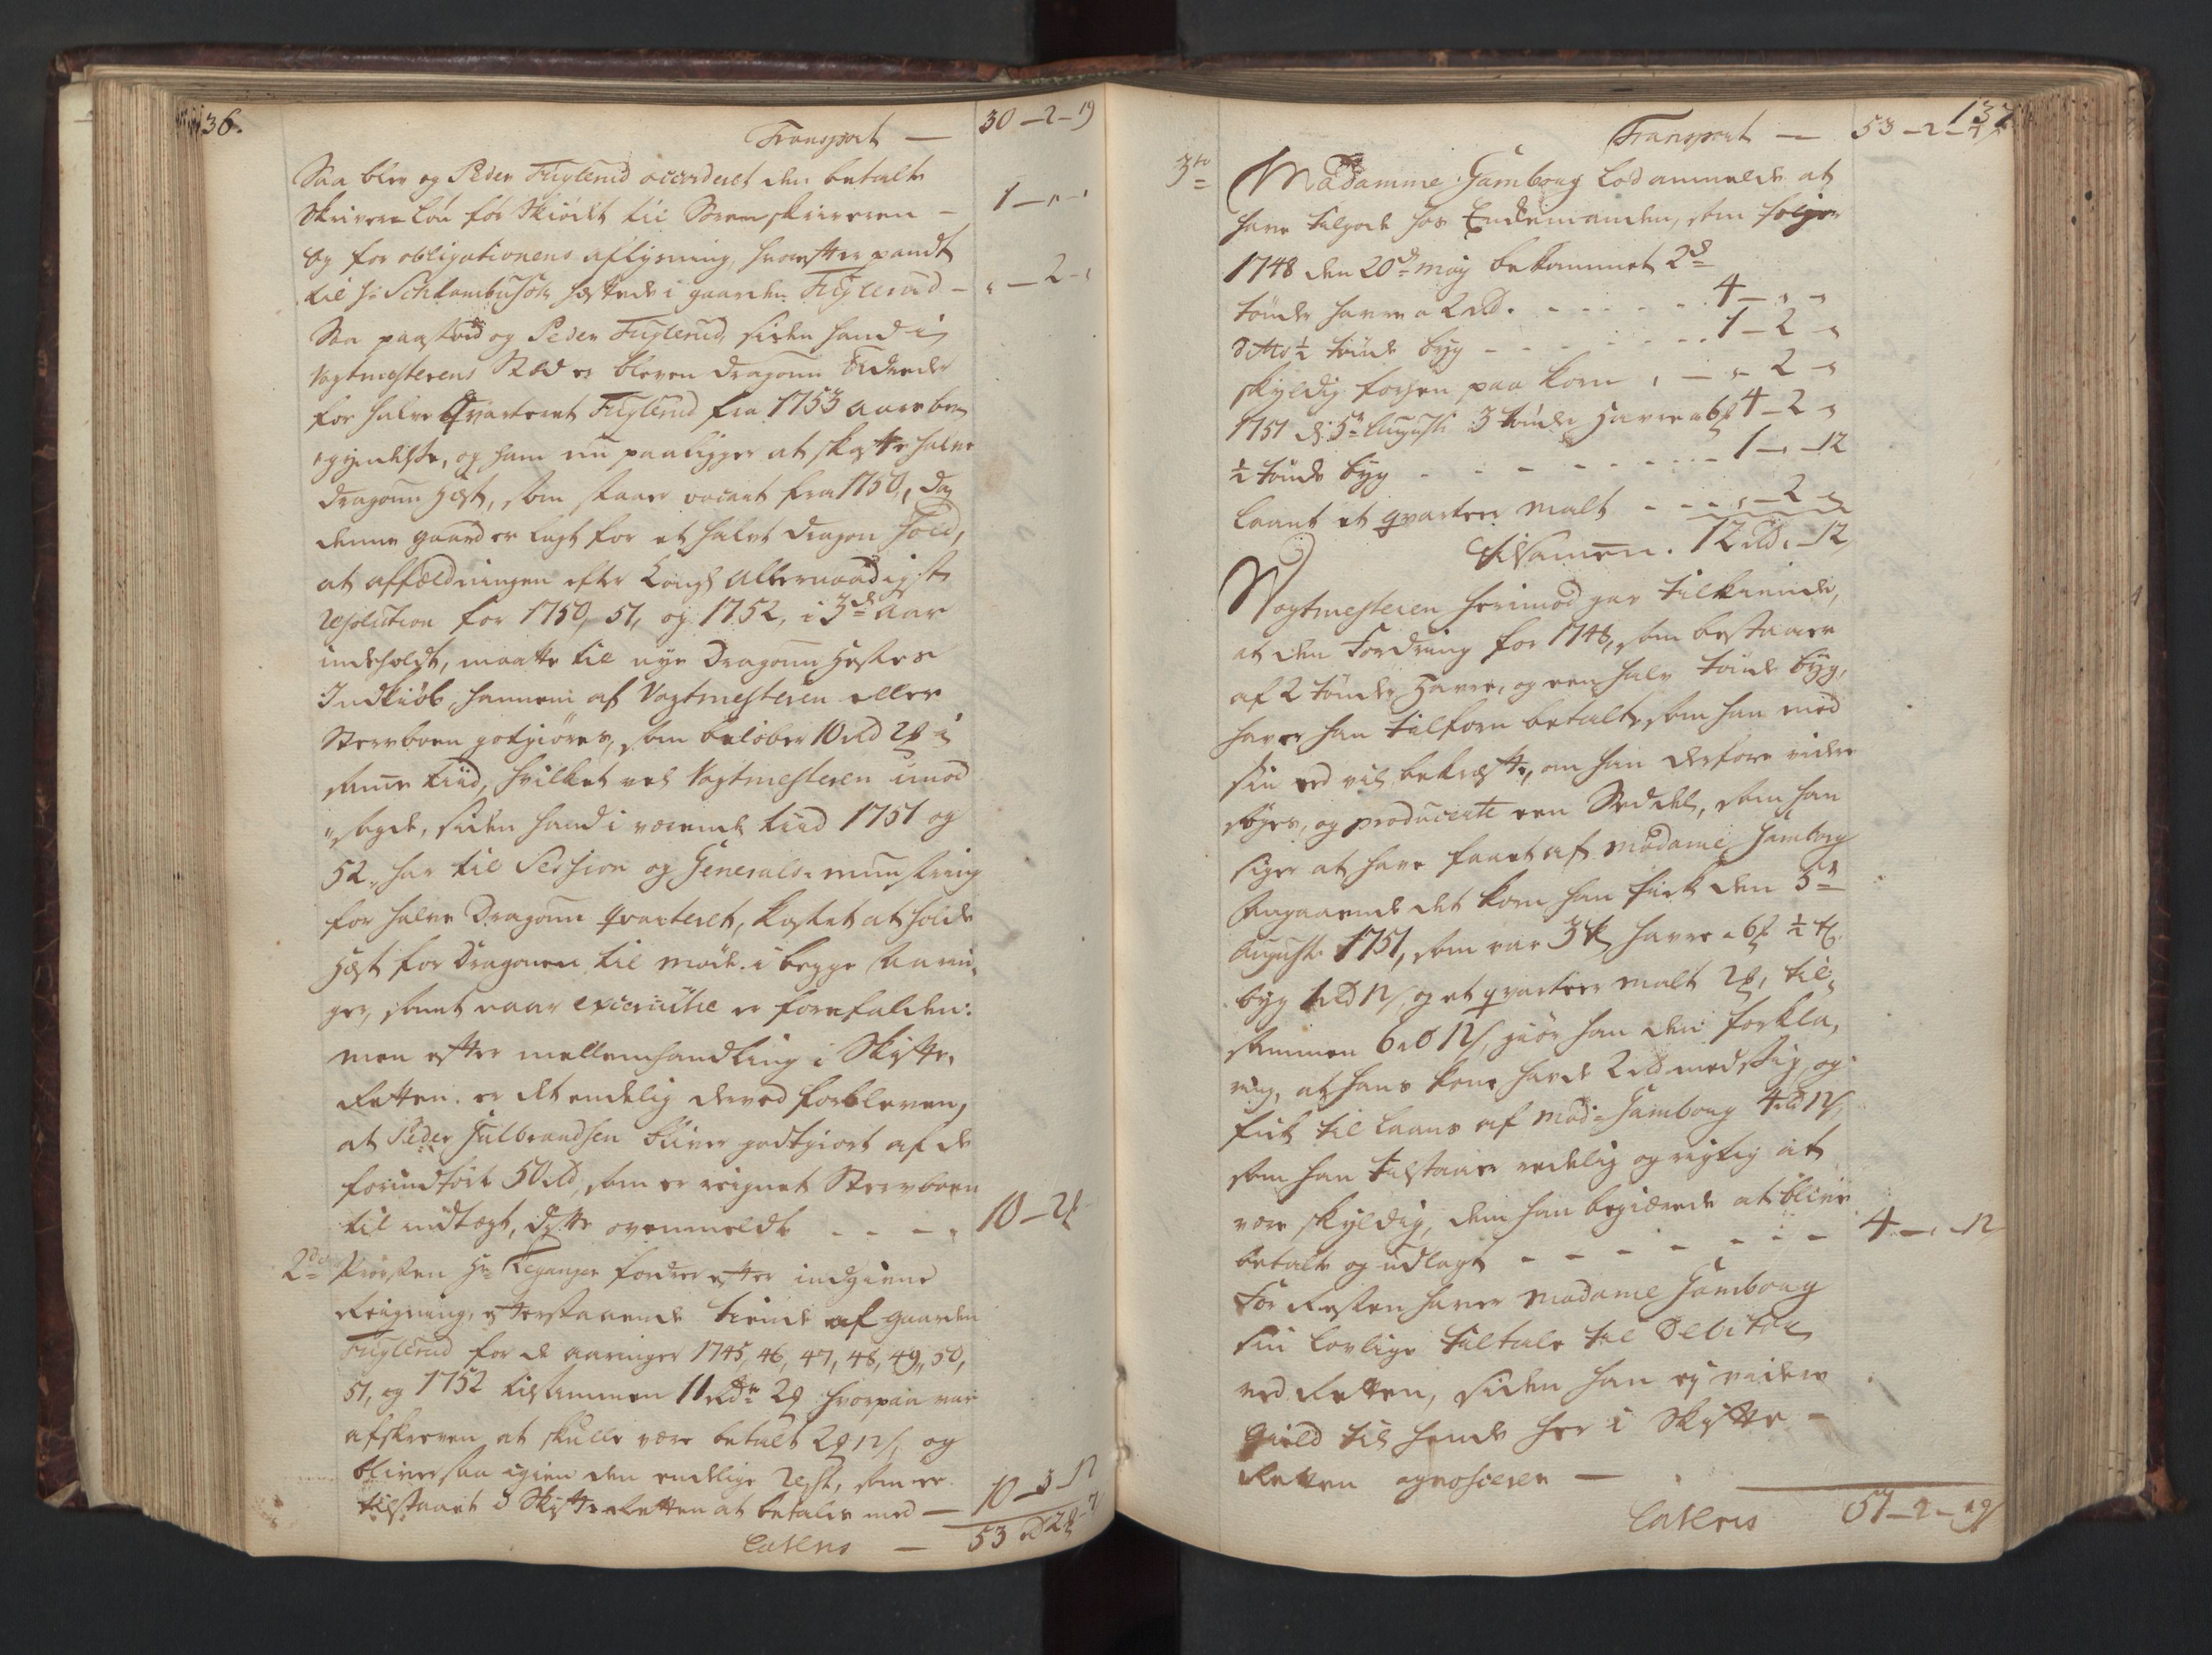 136.
Transport — 30 – 2 – 19
Saa blev og Peder Fuglerud accorderet den betalte
Skriver Løn for Skiødet til Sorenskriveren – 1 – „ – „
og for obligationens aflysning, hvorefter pandt
til Hr Schlambusch hæftede i gaarden Fuglerud – „ – 2 – „
Saa paastod og Peder Fuglerud, siden hand i
Vagtmesterens Sted er bleven Dragoun
for halve Qvarteret Fuglerud fra 1753 aars be„
gyndelse, og ham nu paaligger at skaffe halve
Dragoun Hest, som staaer vacant fra 1750, da
denne gaard er lagt for et halvt Dragon hold,
at affældningen efter Kongl Allernaadigste
Resolution for 1750, 51, og 1752, i 3de Aar
indeholdt, maatte til nye Dragoun Hestes
Indkiøb, hannem af Vagtmesteren eller
Sterboen godgiøres, som beløber 10 rd 2 ß i
samme tiid, hvilket vel Vagtmesteren imod
„sagde, siden hand i værende tiid 1751 og
52, har til Session og Generals-munstring
for halve Dragoun Qvarteret, kostet at holde
Hest for Dragonen til møde i begge Aarin„
ger, samt naar exercitie er forefalden:
men efter mellemhandling i Skifte,
Retten er det endelig derved forbleven,
at Peder Gulbrandsen bliver godtgiort af de
forindførte 50 rd, som er reignet Sterboen
til indtægt, dette ovenmeldte - - - 10 – 2
2do Provsten Hr Leganger fordrer efter indgivne
Reigning, efterstaaende tiende af gaarden
Fuglerud for de aaringer 1745, 46, 47, 48, 49, 50,
51, og 1752 tilsammen 11 Rdr 2 hvorpaa var
afskreven at skulle være betalt 2 12 ß, og
bliver saa igien den endelige Rest, som er
tilstaaet i Skifte Retten at betales med — 10 – 3 – 12
Lateris — 53 rd 2 – 7
137
Transport — 53 – 2 – 7
3tio Madamme Gamborg lod anmelde at
have tilgode hos Enkemanden, som følger
1748 den 20de May bekommet 2de
tønder havre a 2 rd. - - - - - 4 – „ – „
ditto ½ tønde byg - - - - - - 1 – 2 – „
skyldig forhen paa korn , — „ – 2 – „
1751 d: 5te Augusti 3 tønder Havre a 6 4 – 2 – „
½ tønde byg - - - - - - - 1 – „ – 12
laant et qvarteer malt - - - „ – 2 – „
Tilsamen. 12 rd „ – 12
Vagtmesteren herimod gav tilkiende,
at den Fordring for 1748, som bestaaer
af 2 tønder Havre, og een halv tønde byg,
haver han tilforn betalt, som han med
sin eed vil bekræfte, om han derfore videre
søges, og producerte een Seddel, som han
siger at have faaet af Madame Gamborg
Angaaende det korn han fick den 5te
Augusti 1751, som var 3 td havre a 6 ½ td
byg 1 rd 12 ß, og et qvarteer malt 2 , til„
sammen 6 rd 12 ß, giør han den forkla,
ring, at hans kone havde 2 rd med sig, og
fick til laans af Mad: Gamborg 4 rd 12 ß
som han tilstaaer redelig og rigtig at
være skyldig, dem han begiærede at blive
betalt og udlagt - - - - - - - 4 – „ – 12
For Resten haver Madame Gamborg
sin lovlige tiltale til Debitor
ved Retten, siden han ey videre
Gield til hende her i Skifte –
Retten agnoscerer —
Lateris 57 – 2 – 19